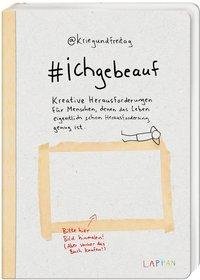 @kriegundfreitag
#ichgebeauf
Kreative Herausforderungen
für Menschen, denen das Leben
eigentlich schon Herausforderung
genug ist.
Bitte hier
Bild hinmalen!
(Aber vorher das
Buch kaufen!)
LAPPAN